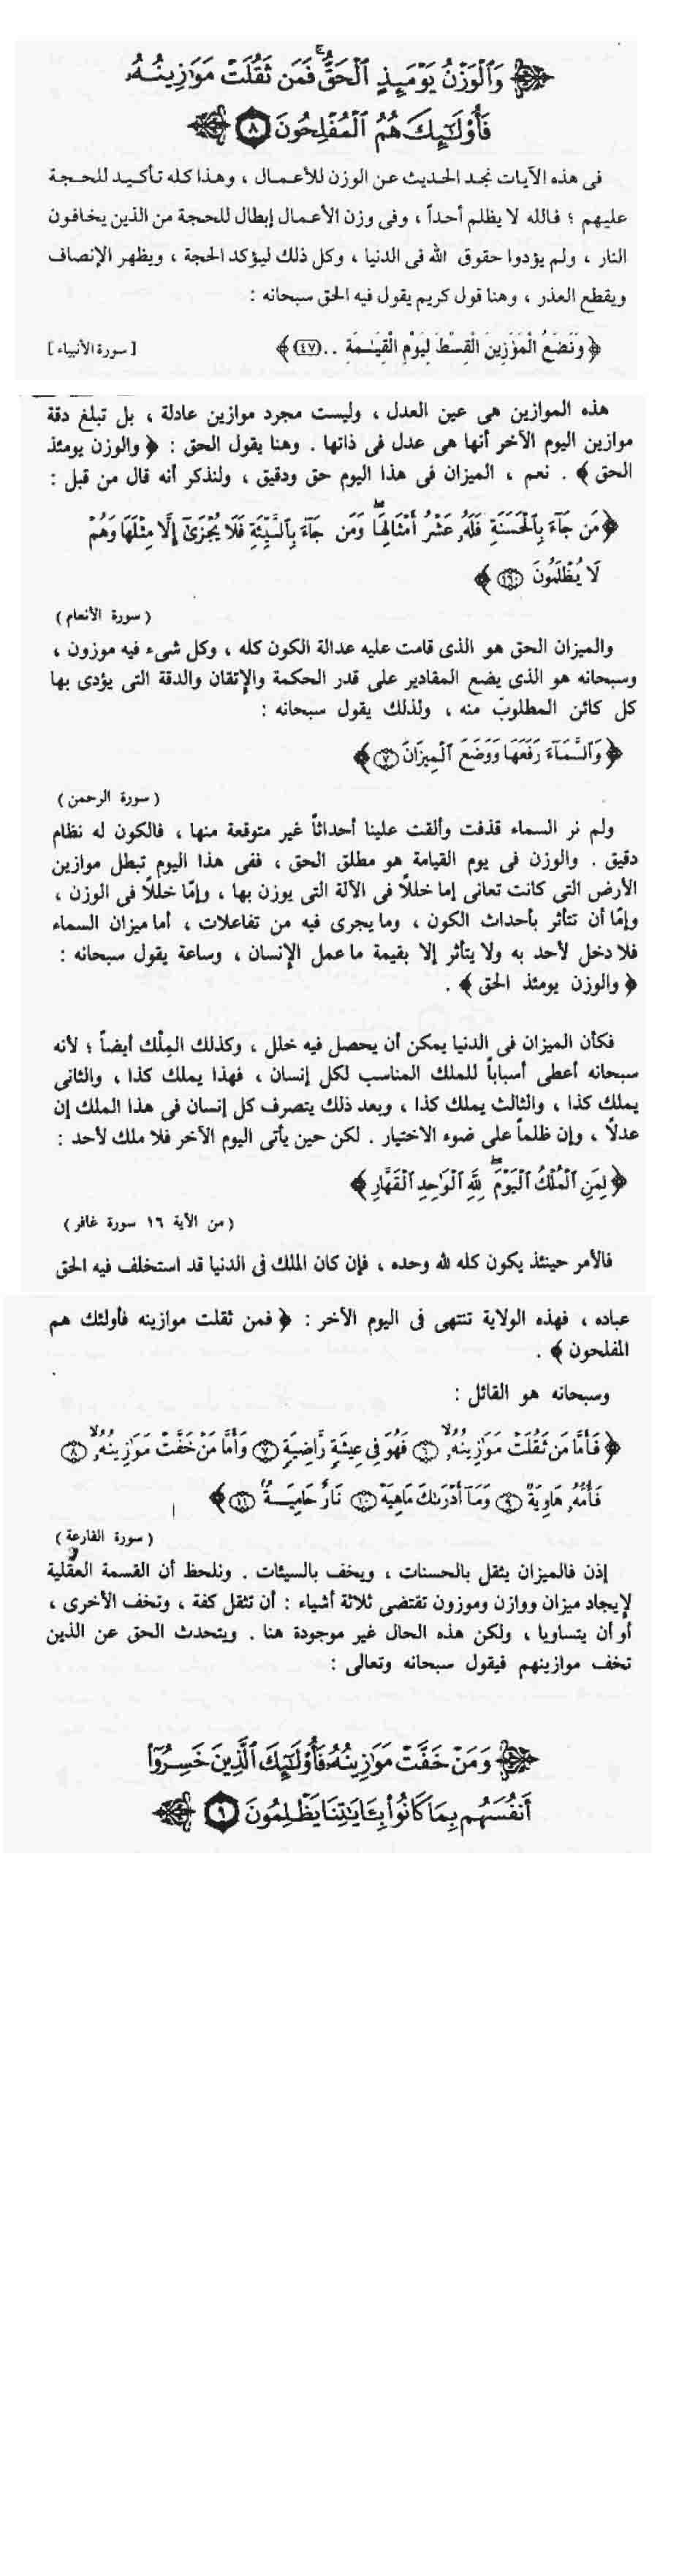 وَٱلْوَزْنُ يَوْمَئِذٍ ٱلْحَقُّ ۚ فَمَن ثَقُلَتْ مَوَٰزِينُهُۥ
فَأُو۟لَٰٓئِكَ هُمُ ٱلْمُفْلِحُونَ ٨
فى هذه الآيات نجد الحديث عن الوزن للأعمال ، وهذا كله تأكيد للحجة
عليهم ؛ فالله لا يظلم أحداً ، وفى وزن الأعمال إبطال للحجة من الذين يخافون
النار ، ولم يؤدوا حقوق الله فى الدنيا ، وكل ذلك ليؤكد الحجة ، ويظهر الإنصاف
ويقطع العذر ، وهنا قول كريم يقول فيه الحق سبحانه :
﴿ وَنَضَعُ الْمَوَٰزِينَ الْقِسْطَ لِيَوْمِ الْقِيَٰمَةِ .. (٤٧) ﴾ [ سورة الأنبياء ]
هذه الموازين هى عين العدل ، وليست مجرد موازين عادلة ، بل تبلغ دقة
موازين اليوم الآخر أنها هى عدل فى ذاتها . وهنا يقول الحق : ﴿ والوزن يومئذ
الحق ﴾ . نعم ، الميزان فى هذا اليوم حق ودقيق ، ولنذكر أنه قال من قبل :
﴿ مَن جَآءَ بِٱلْحَسَنَةِ فَلَهُۥ عَشْرُ أَمْثَالِهَا ۖ وَمَن جَآءَ بِٱلسَّيِّئَةِ فَلَا يُجْزَىٰٓ إِلَّا مِثْلَهَا وَهُمْ
لَا يُظْلَمُونَ ١٦٠ ﴾
( سورة الأنعام )
والميزان الحق هو الذى قامت عليه عدالة الكون كله ، وكل شىء فيه موزون ،
وسبحانه هو الذى يضع المقادير على قدر الحكمة والإتقان والدقة التى يؤدى بها
كل كائن المطلوبَ منه ، ولذلك يقول سبحانه :
﴿ وَٱلسَّمَآءَ رَفَعَهَا وَوَضَعَ ٱلْمِيزَانَ ٧ ﴾
( سورة الرحمن )
ولم نر السماء قذفت وألقت علينا أحداثاً غير متوقعة منها ، فالكون له نظام
دقيق . والوزن فى يوم القيامة هو مطلق الحق ، ففى هذا اليوم تبطل موازين
الأرض التى كانت تعانى إما خللاً فى الآلة التى يوزن بها ، وإمّا خللاً فى الوزن ،
وإمّا أن تتأثر بأحداث الكون ، وما يجرى فيه من تفاعلات ، أما ميزان السماء
فلا دخل لأحد به ولا يتأثر إلا بقيمة ما عمل الإنسان ، وساعة يقول سبحانه :
﴿ والوزن يومئذ الحق ﴾ .
فكأن الميزان فى الدنيا يمكن أن يحصل فيه خلل ، وكذلك المِلْك أيضاً ؛ لأنه
سبحانه أعطى أسباباً للملك المناسب لكل إنسان ، فهذا يملك كذا ، والثانى
يملك كذا ، والثالث يملك كذا ، وبعد ذلك يتصرف كل إنسان فى هذا الملك إن
عدلاً ، وإن ظلماً على ضوء الاختيار . لكن حين يأتى اليوم الآخر فلا ملك لأحد :
﴿ لِمَنِ ٱلْمُلْكُ ٱلْيَوْمَ ۖ لِلَّهِ ٱلْوَٰحِدِ ٱلْقَهَّارِ ﴾
( من الآية ١٦ سورة غافر )
فالأمر حينئذ يكون كله لله وحده ، فإن كان الملك فى الدنيا قد استخلف فيه الحق
عباده ، فهذه الولاية تنتهى فى اليوم الآخر : ﴿ فمن ثقلت موازينه فأولئك هم
المفلحون ﴾ .
وسبحانه هو القائل :
﴿ فَأَمَّا مَن ثَقُلَتْ مَوَٰزِينُهُۥ ٦ فَهُوَ فِى عِيشَةٍ رَّاضِيَةٍ ٧ وَأَمَّا مَنْ خَفَّتْ مَوَٰزِينُهُۥ ٨
فَأُمُّهُۥ هَاوِيَةٌ ٩ وَمَآ أَدْرَىٰكَ مَاهِيَهْ ١٠ نَارٌ حَامِيَةٌ ١١ ﴾
( سورة القارعة )
إذن فالميزان يثقل بالحسنات ، ويخف بالسيئات . ونلحظ أن القسمة العقلية
لإيجاد ميزان ووازن وموزون تقتضى ثلاثة أشياء : أن تثقل كفة ، وتخف الأخرى ،
أو أن يتساويا ، ولكن هذه الحال غير موجودة هنا . ويتحدث الحق عن الذين
تخف موازينهم فيقول سبحانه وتعالى :
وَمَنْ خَفَّتْ مَوَٰزِينُهُۥ فَأُو۟لَٰٓئِكَ ٱلَّذِينَ خَسِرُوٓا۟
أَنفُسَهُم بِمَا كَانُوا۟ بِـَٔايَٰتِنَا يَظْلِمُونَ ٩